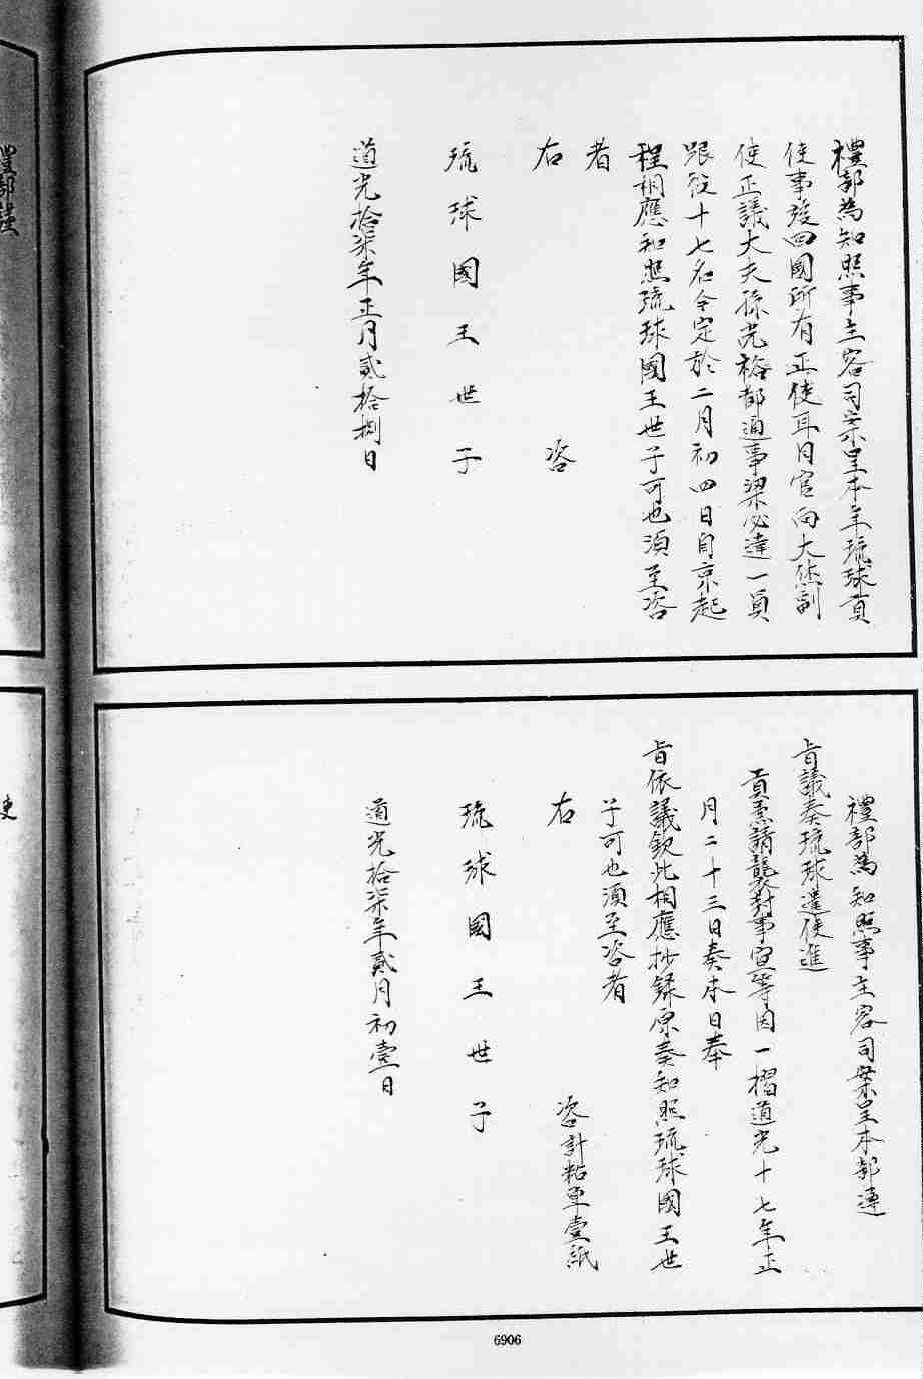 禮部為知照事主客司案呈本年琉球貢
使事竣回國所有正使耳目官向大烋副
使正議大夫孫光裕都通事梁必達一員
跟役十七名今定於二月初四日自京起
程相應知照琉球國王世子可也須至咨
者
右 咨
琉球國王世子
道光拾柒年正月貳拾捌日
禮部為知照事主客司案呈本部遵
旨議奏琉球遣使進
貢並請襲封事宜等因一摺道光十七年正
月二十三日奏本日奉
旨依議欽此相應抄錄原奏知照琉球國王世
子可也須至咨者
右 咨計粘單壹紙
琉球國王世子
道光拾柒年貳月初壹日
禮部謹
使
6906